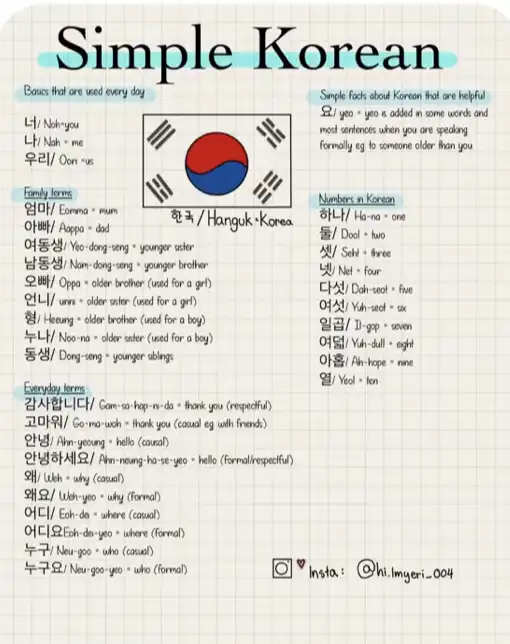 Simple Korean
Basics that are used every day
너/ Noh=you
나/ Nah = me
우리/ Oori =us
한국/Hanguk=Korea
Simple facts about Korean that are helpful
요/ yeo = yeo is added in some words and
most sentences when you are speaking
formally eg to someone older than you
Family terms
엄마/ Eomma = mum
아빠/ Aappa = dad
여동생/ Yeo-dong-seng = younger sister
남동생/ Nam-dong-seng = younger brother
오빠/ Oppa = older brother (used for a girl)
언니/ unni = older sister (used for a girl)
형/ Heeung = older brother (used for a boy)
누나/ Noo-na = older sister (used for a boy)
동생/ Dong-seng = younger siblings
Numbers in Korean
하나/ Ha-na = one
둘/ Dool = two
셋/ Seht = three
넷/ Net = four
다섯/ Dah-seot = five
여섯/ Yuh-seot = six
일곱/ Il-gop = seven
여덟/ Yuh-dull = eight
아홉/ Ah-hope = nine
열/ Yeol = ten
Everyday terms
감사합니다/ Gam-sa-hap-ni-da = thank you (respectful)
고마워/ Go-ma-woh = thank you (casual eg with friends)
안녕/ Ahn-yeoung = hello (casual)
안녕하세요/ Ahn-neung-ha-se-yeo = hello (formal/respectful)
왜/ Weh = why (casual)
왜요/ Weh-yeo = why (formal)
어디/ Eoh-de = where (casual)
어디요Eoh-de-yeo = where (formal)
누구/ Neu-goo = who (casual)
누구요/ Neu-goo-yeo = who (formal)
Insta: @hi.Imyeri_004